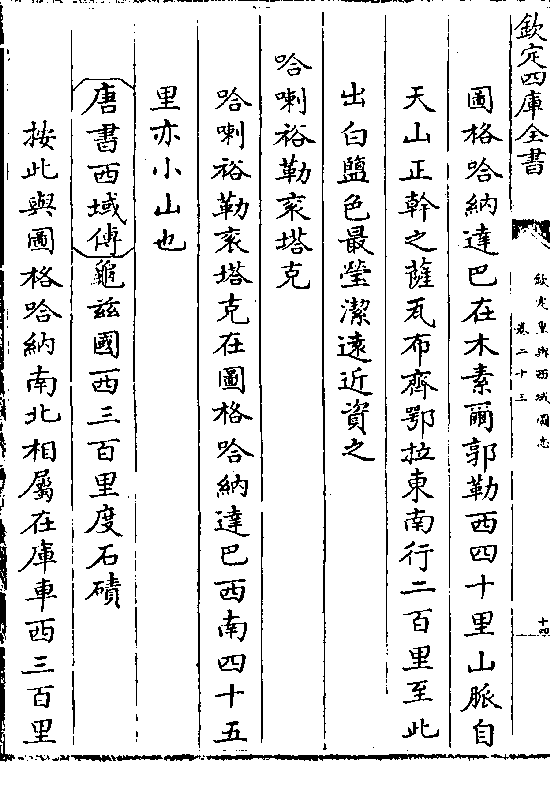 欽定四庫全書
欽定皇輿西域圖志
卷二十三
十四
圖格哈納達巴在木素爾郭勒西四十里山脈自
天山正幹之薩瓦布齊鄂拉東南行二百里至此
出白鹽色最瑩潔遠近資之
哈喇裕勒袞塔克
哈喇裕勒袞塔克在圖格哈納達巴西南四十五
里亦小山也
唐書西域傳龜兹國西三百里度石磧
按此與圖格哈納南北相屬在庫車西三百里